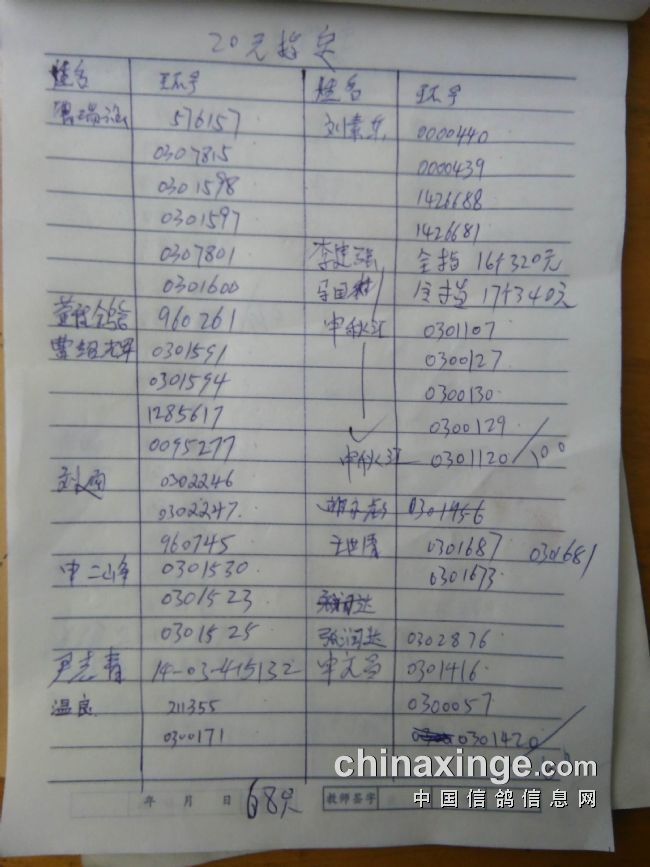 20元指定
姓名 环号 姓名 环号
576157 刘素 0000440
0307815 0000439
0301598 1426688
0301597 1426681
0307801 李建强 全指 16+320元
0301600 全指 17+340元
960261 申秋江 0301107
曹 0301591 0300127
0301594 0300130
1285617 0300129
0095277 申秋江 0301120 100
刘 0302246 0301456
0302247 王世清 0301687 0301681
960745 0301673
申二峰 0301530
0301523 张润达
0301525 张润达 0302876
尹志青 14-03-415132 申文昌 0301416
温良 211355 0300057
0300171 0301420
chinaxinge.com
年 月 日 68只 教师签字 中国信鸽信息网